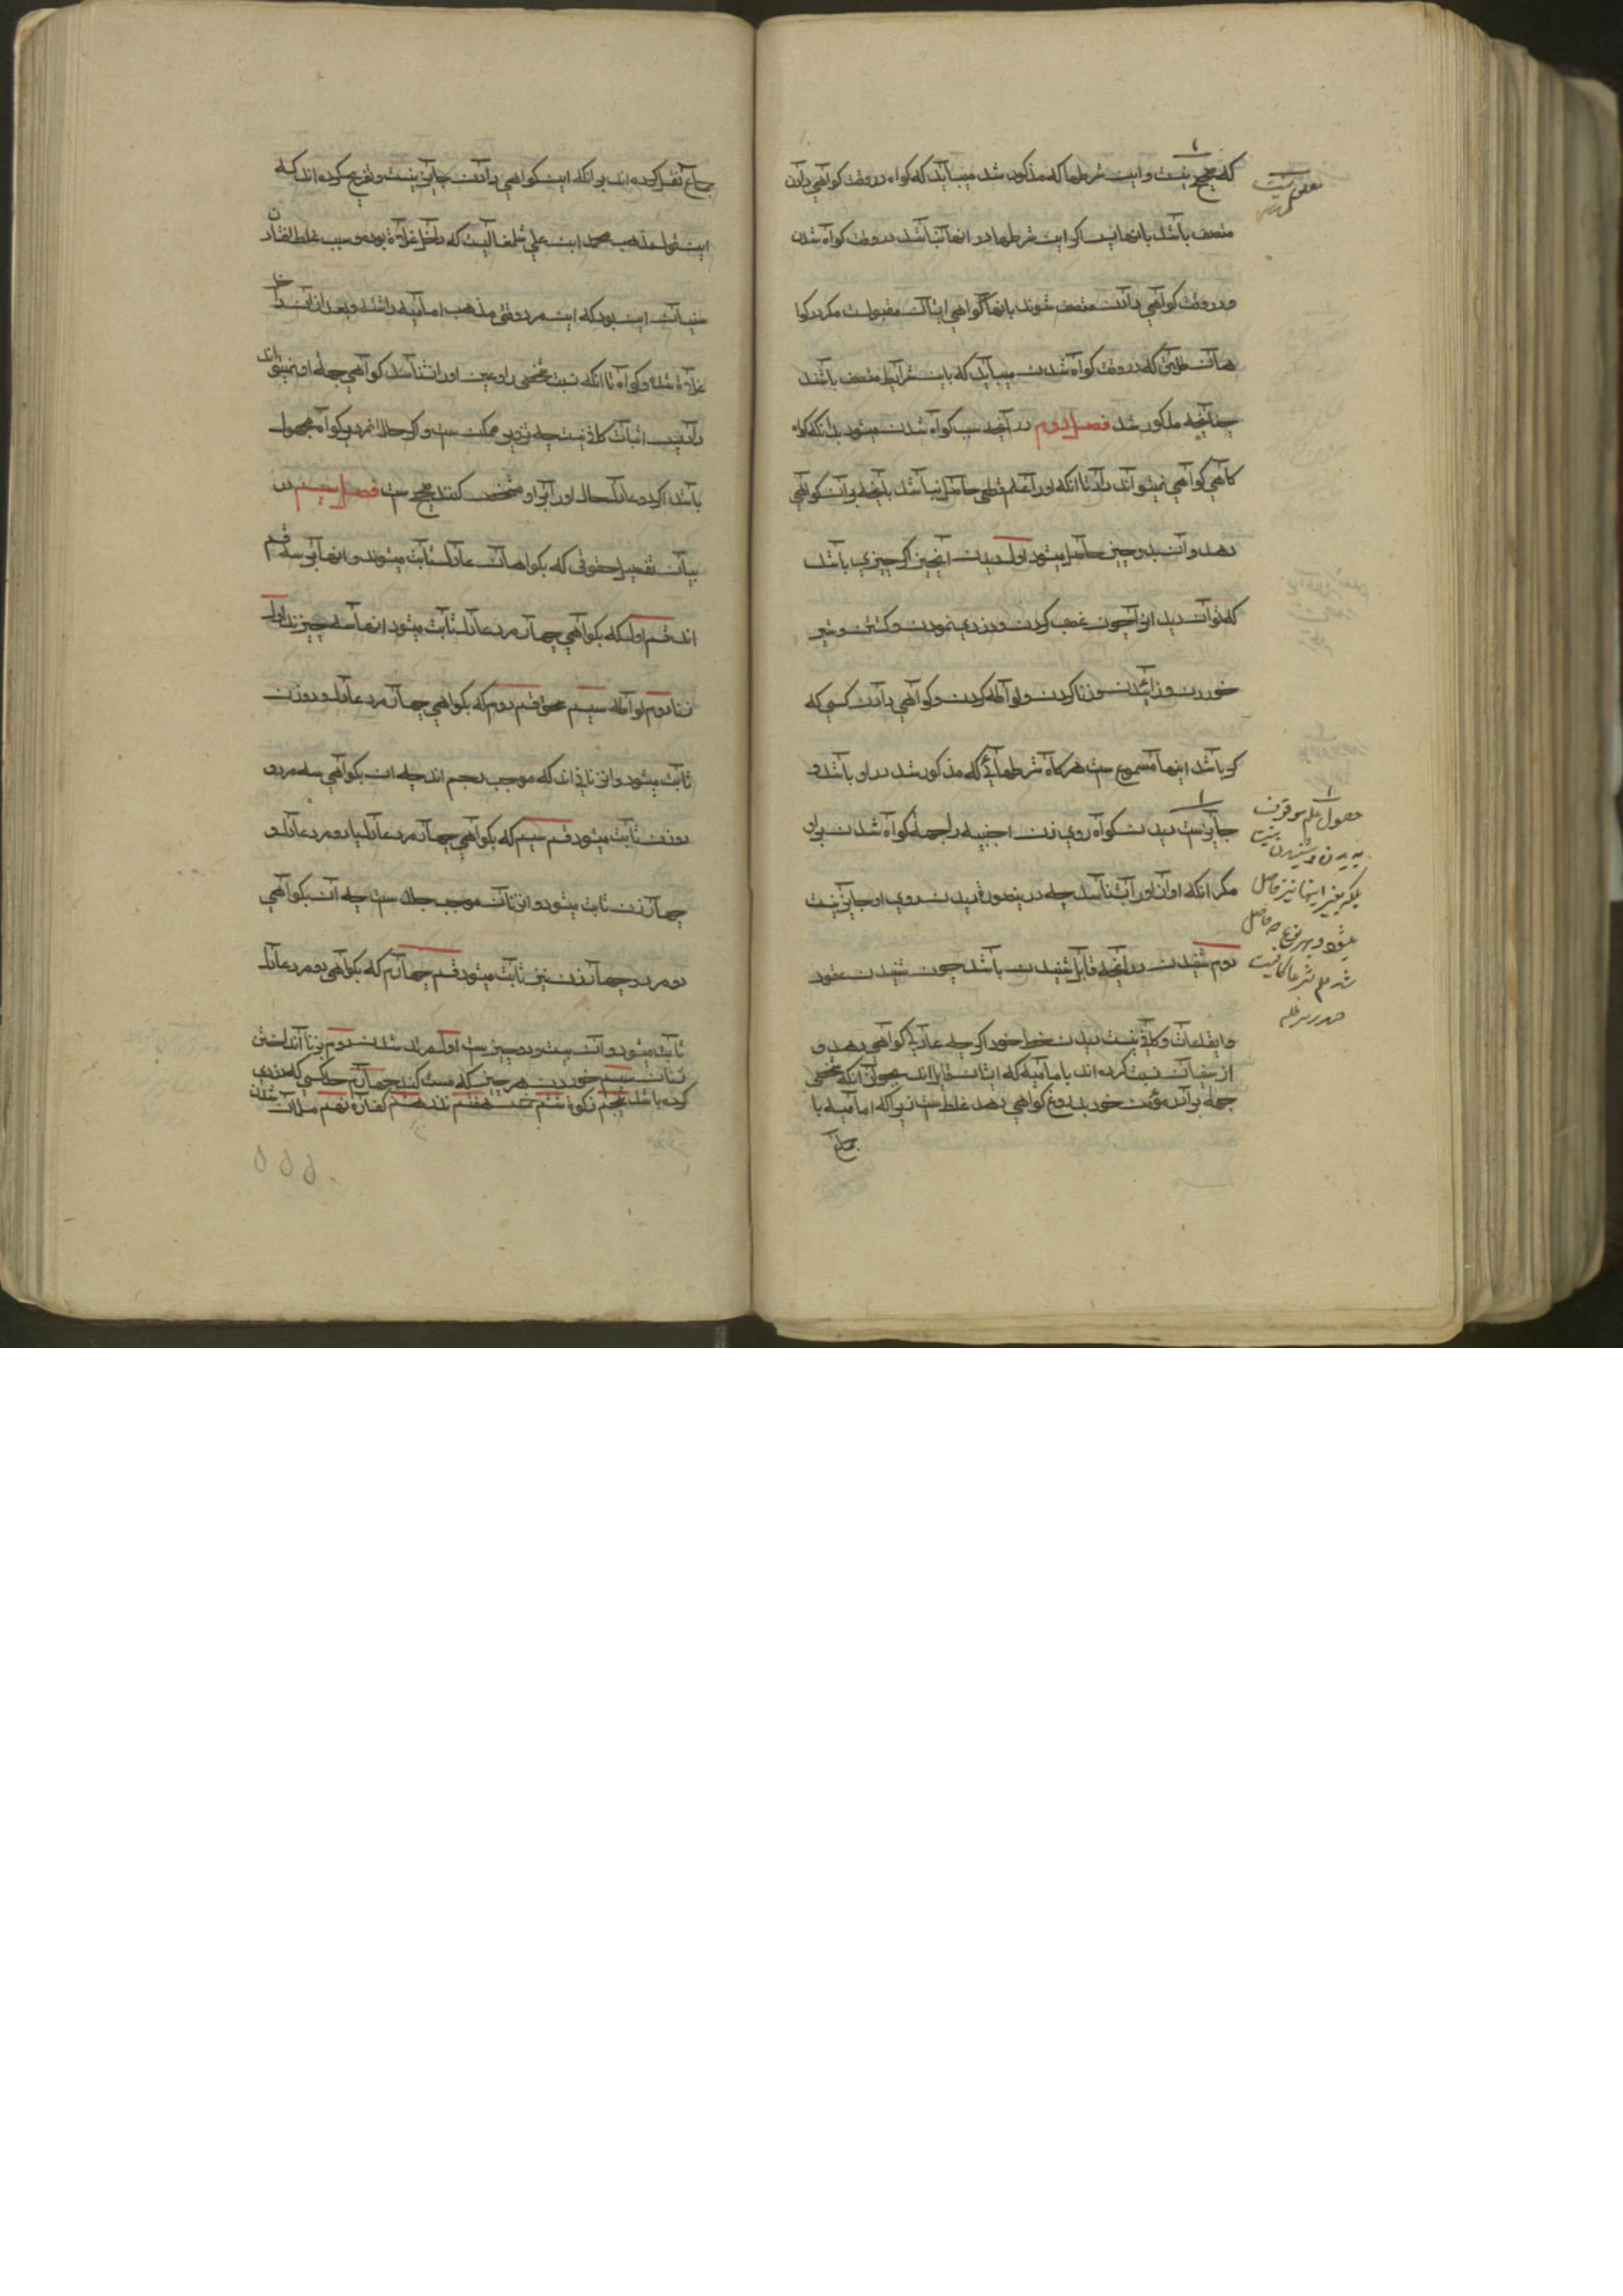 که صحیح نیست و این شرطها که مذکور شد میباید که گواه در وقت گواهی دادن
متصف باشد بانها پس اگر این شرطها در انها نباشد در وقت گواه شدن
و در وقت گواهی دادن متصف شوند بانها گواهی ایشان مقبولست مگر در گوا
هان طلاق که در وقت گواه شدن میباید که باین شرایط متصف باشند
چنانچه مذکور شد فصل دوم در آنچه سبب گواه شدن میشود بدانکه گواه
گاهی گواهی نمیتواند داد تا انکه او را علم قطعی حاصل نباشد بانچه بران گواهی
دهد و آن بدو چیز حاصل میشود اول دیدن انچیز اگر چیزی باشد
که توان دید انرا چون غصب کردن و دزدی نمودن و کشتن و شیر
خوردن و زائیدن و زنا کردن و لواطه کردن و گواهی دادن کسی که
کر باشد اینها مسموع ست هرگاه شرطهائی که مذکور شد در او باشد و
جایزست دیدن گواه روی زن اجنبیه را جهة گواه شدن برو
مگر انکه اواز او را بشناسد چه درینصورة دیدن روی او جایز نیست
دوم شنیدن در آنچه قابل شنیدن باشد چون شنیدن عقود
و ایقاعات و کافی نیست دیدن خط خود اگر چه عادلی گواهی دهد و
از سنیان نسبت کرده اند بامامیه که ایشان قایل اند بجواز انکه شخصی
جهة برادر مؤمن خود بدروغ گواهی دهد غلط ست زیرا که امامیه با
جماع
حصول علم موقوف
بدیدن و شنیدن نیست
بلکه بغیر اینها نیز حاصل
میشود و بهر نوع که حاصل
شد علم شرعا کافیست
جماع نقل کرده اند بر انکه این گواهی دادن جایز نیست و تصریح کرده اند که
این قول مذهب محمد ابن علی شلمغانیست که داخل غلاة بوده و سبب غلط افتادن
سنیان این بود که این مرد وقتی مذهب امامیه داشته و بعد ازان داخل
غلاة شده و گواه تا انکه نسبت شخصی را و عین او را نشناسد گواهی جهة او نمیتواند
داد پس اثبات کافی نیست چه تزویر ممکن ست و اگر حال انمرد بر گواه مجهول
باشد اگر دو عادل حال او را برو مشخص کنند صحیح ست فصل سیم در
بیان تفصیل حقوقی که بگواهان عادل ثابت میشوند و انها بر سه قسم
اند قسم اول که بگواهی چهار مرد عادل ثابت میشود انها سه چیزند اول
زنا دوم لواطه سیم سحق قسم دوم که بگواهی چهار مرد عادل و دو زن
ثابت میشود و ان زنائی اند که موجب رجم اند چه ان بگواهی سه مرد و
دو زن ثابت میشود قسم سیم که بگواهی چهار مرد عادل یا دو مرد عادل و
چهار زن ثابت میشود و ان زنای موجب جلد ست چه آن بگواهی
دو مرد و چهار زن نیز ثابت میشود قسم چهارم که بگواهی دو مرد عادل
ثابت میشود و آن بیست و دو چیزست اول مرتد شدن دوم بزنا انداختن
زنان سیم خوردن هر چیز که مست کند چهارم حد کسی که دزدی
کرده باشد پنجم زکوة ششم خمس هفتم نذر هشتم کفارة نهم مسلمان شدن